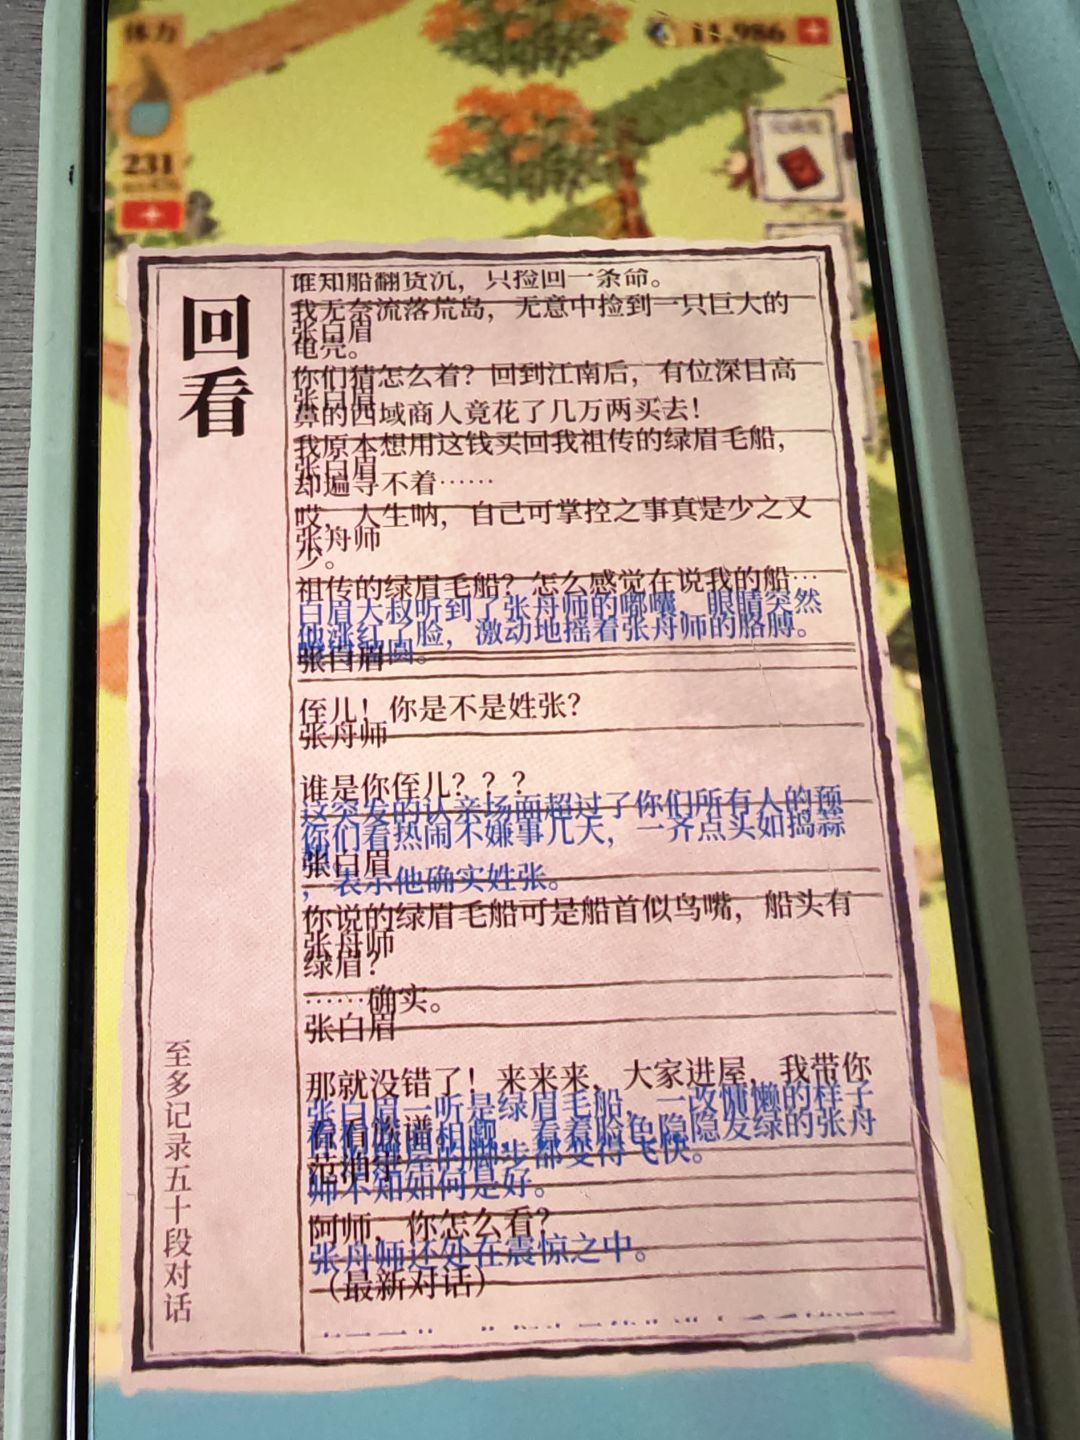 体力
11,986
231
回看
至多记录五十段对话
谁知船翻货沉，只捡回一条命。
我无奈流落荒岛，无意中捡到一只巨大的
张白眉
龟壳。
你们猜怎么着？回到江南后，有位深目高
张白眉
鼻的西域商人竟花了几万两买去！
我原本想用这钱买回我祖传的绿眉毛船，
张白眉
却遍寻不着……
哎，人生呐，自己可掌控之事真是少之又
张舟师
少。
祖传的绿眉毛船？怎么感觉在说我的船…
白眉大叔听到了张舟师的嘟囔，眼睛突然
他涨红了脸，激动地摇着张舟师的胳膊。
张白眉
圆。
侄儿！你是不是姓张？
张舟师
谁是你侄儿？？？
这突发的认亲场面超过了你们所有人的预
你们看热闹不嫌事儿大，一齐点头如捣蒜
张白眉
，表示他确实姓张。
你说的绿眉毛船可是船首似鸟嘴，船头有
张舟师
绿眉？
……确实。
张白眉
那就没错了！来来来，大家进屋，我带你
张白眉一听是绿眉毛船，一改慵懒的样子
看看族谱
相觑，看着脸色隐隐发绿的张舟
的脚步都变得飞快。
师不知如何是好。
阿师，你怎么看？
张舟师还处在震惊之中。
（最新对话）